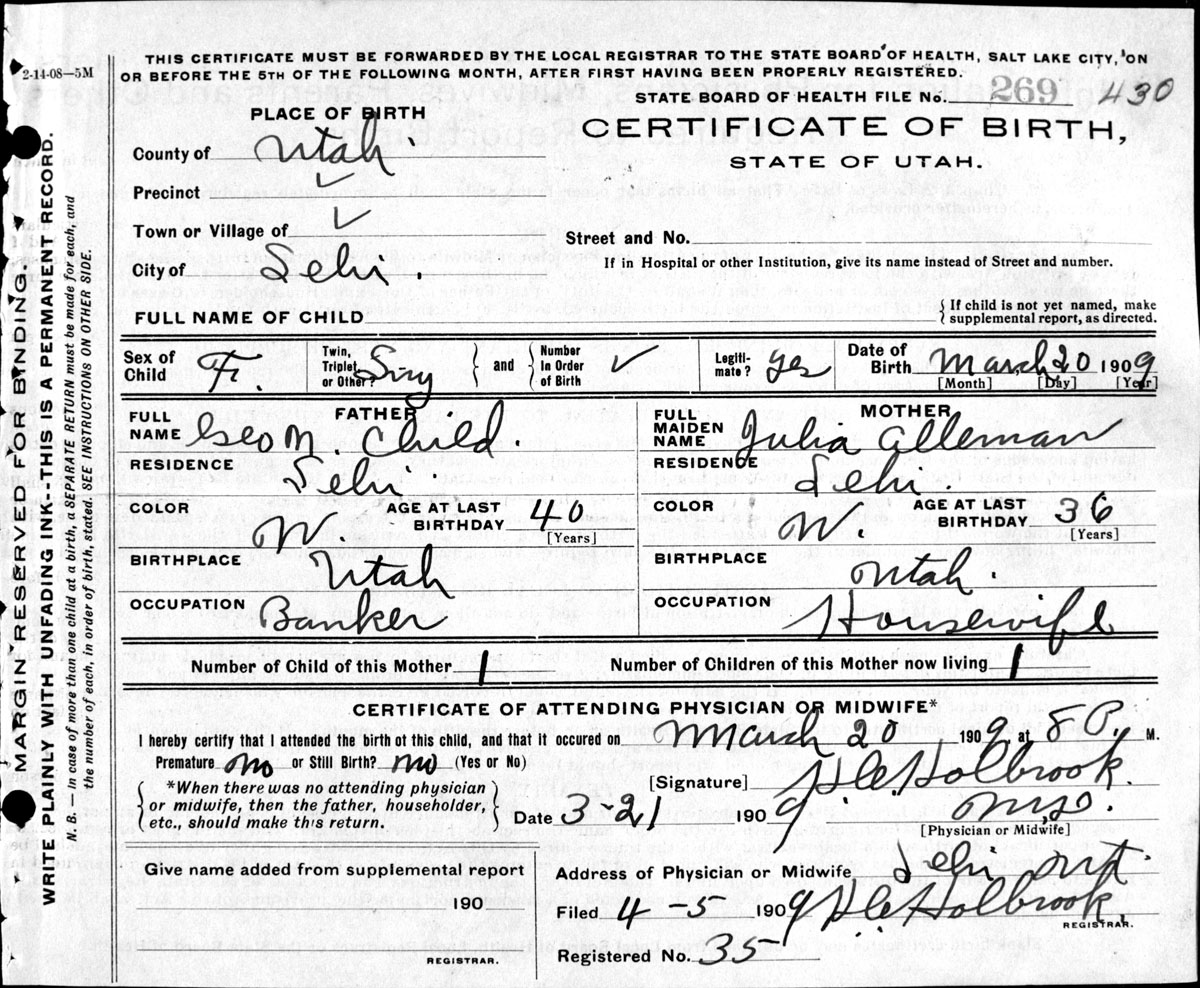 2-14-08—5M
THIS CERTIFICATE MUST BE FORWARDED BY THE LOCAL REGISTRAR TO THE STATE BOARD OF HEALTH, SALT LAKE CITY, ON
OR BEFORE THE 5TH OF THE FOLLOWING MONTH, AFTER FIRST HAVING BEEN PROPERLY REGISTERED.
STATE BOARD OF HEALTH FILE No. 269 430
PLACE OF BIRTH
CERTIFICATE OF BIRTH,
STATE OF UTAH.
County of Utah.
Precinct ✓
Town or Village of ✓
Street and No.
City of Lehi.
If in Hospital or other Institution, give its name instead of Street and number.
FULL NAME OF CHILD { If child is not yet named, make
supplemental report, as directed.
Sex of Child F. Twin, Triplet, or Other? Sing and Number In Order of Birth ✓ Legiti-mate? Yes Date of Birth March 20 1909
[Month] [Day] [Year]
FATHER MOTHER
FULL NAME Geo M. Child. FULL MAIDEN NAME Julia Alleman
RESIDENCE Lehi. RESIDENCE Lehi.
COLOR W. AGE AT LAST BIRTHDAY 40 [Years] COLOR W. AGE AT LAST BIRTHDAY 36 [Years]
BIRTHPLACE Utah BIRTHPLACE Utah.
OCCUPATION Banker OCCUPATION Housewife
Number of Child of this Mother 1 Number of Children of this Mother now living 1
CERTIFICATE OF ATTENDING PHYSICIAN OR MIDWIFE*
I hereby certify that I attended the birth of this child, and that it occured on March 20, 1909 at 8 P. M.
Premature no or Still Birth? no (Yes or No)
[Signature] Holbrook.
*When there was no attending physician
or midwife, then the father, householder,
etc., should make this return.
Date 3-21 1909
[Physician or Midwife]
Give name added from supplemental report
190
REGISTRAR.
Address of Physician or Midwife Lehi Ut
Filed 4-5 1909 Holbrook,
REGISTRAR.
Registered No. 35
MARGIN RESERVED FOR BINDING.
WRITE PLAINLY WITH UNFADING INK--THIS IS A PERMANENT RECORD.
N. B. — In case of more than one child at a birth, a SEPARATE RETURN must be made for each, and
the number of each, in order of birth, stated. SEE INSTRUCTIONS ON OTHER SIDE.